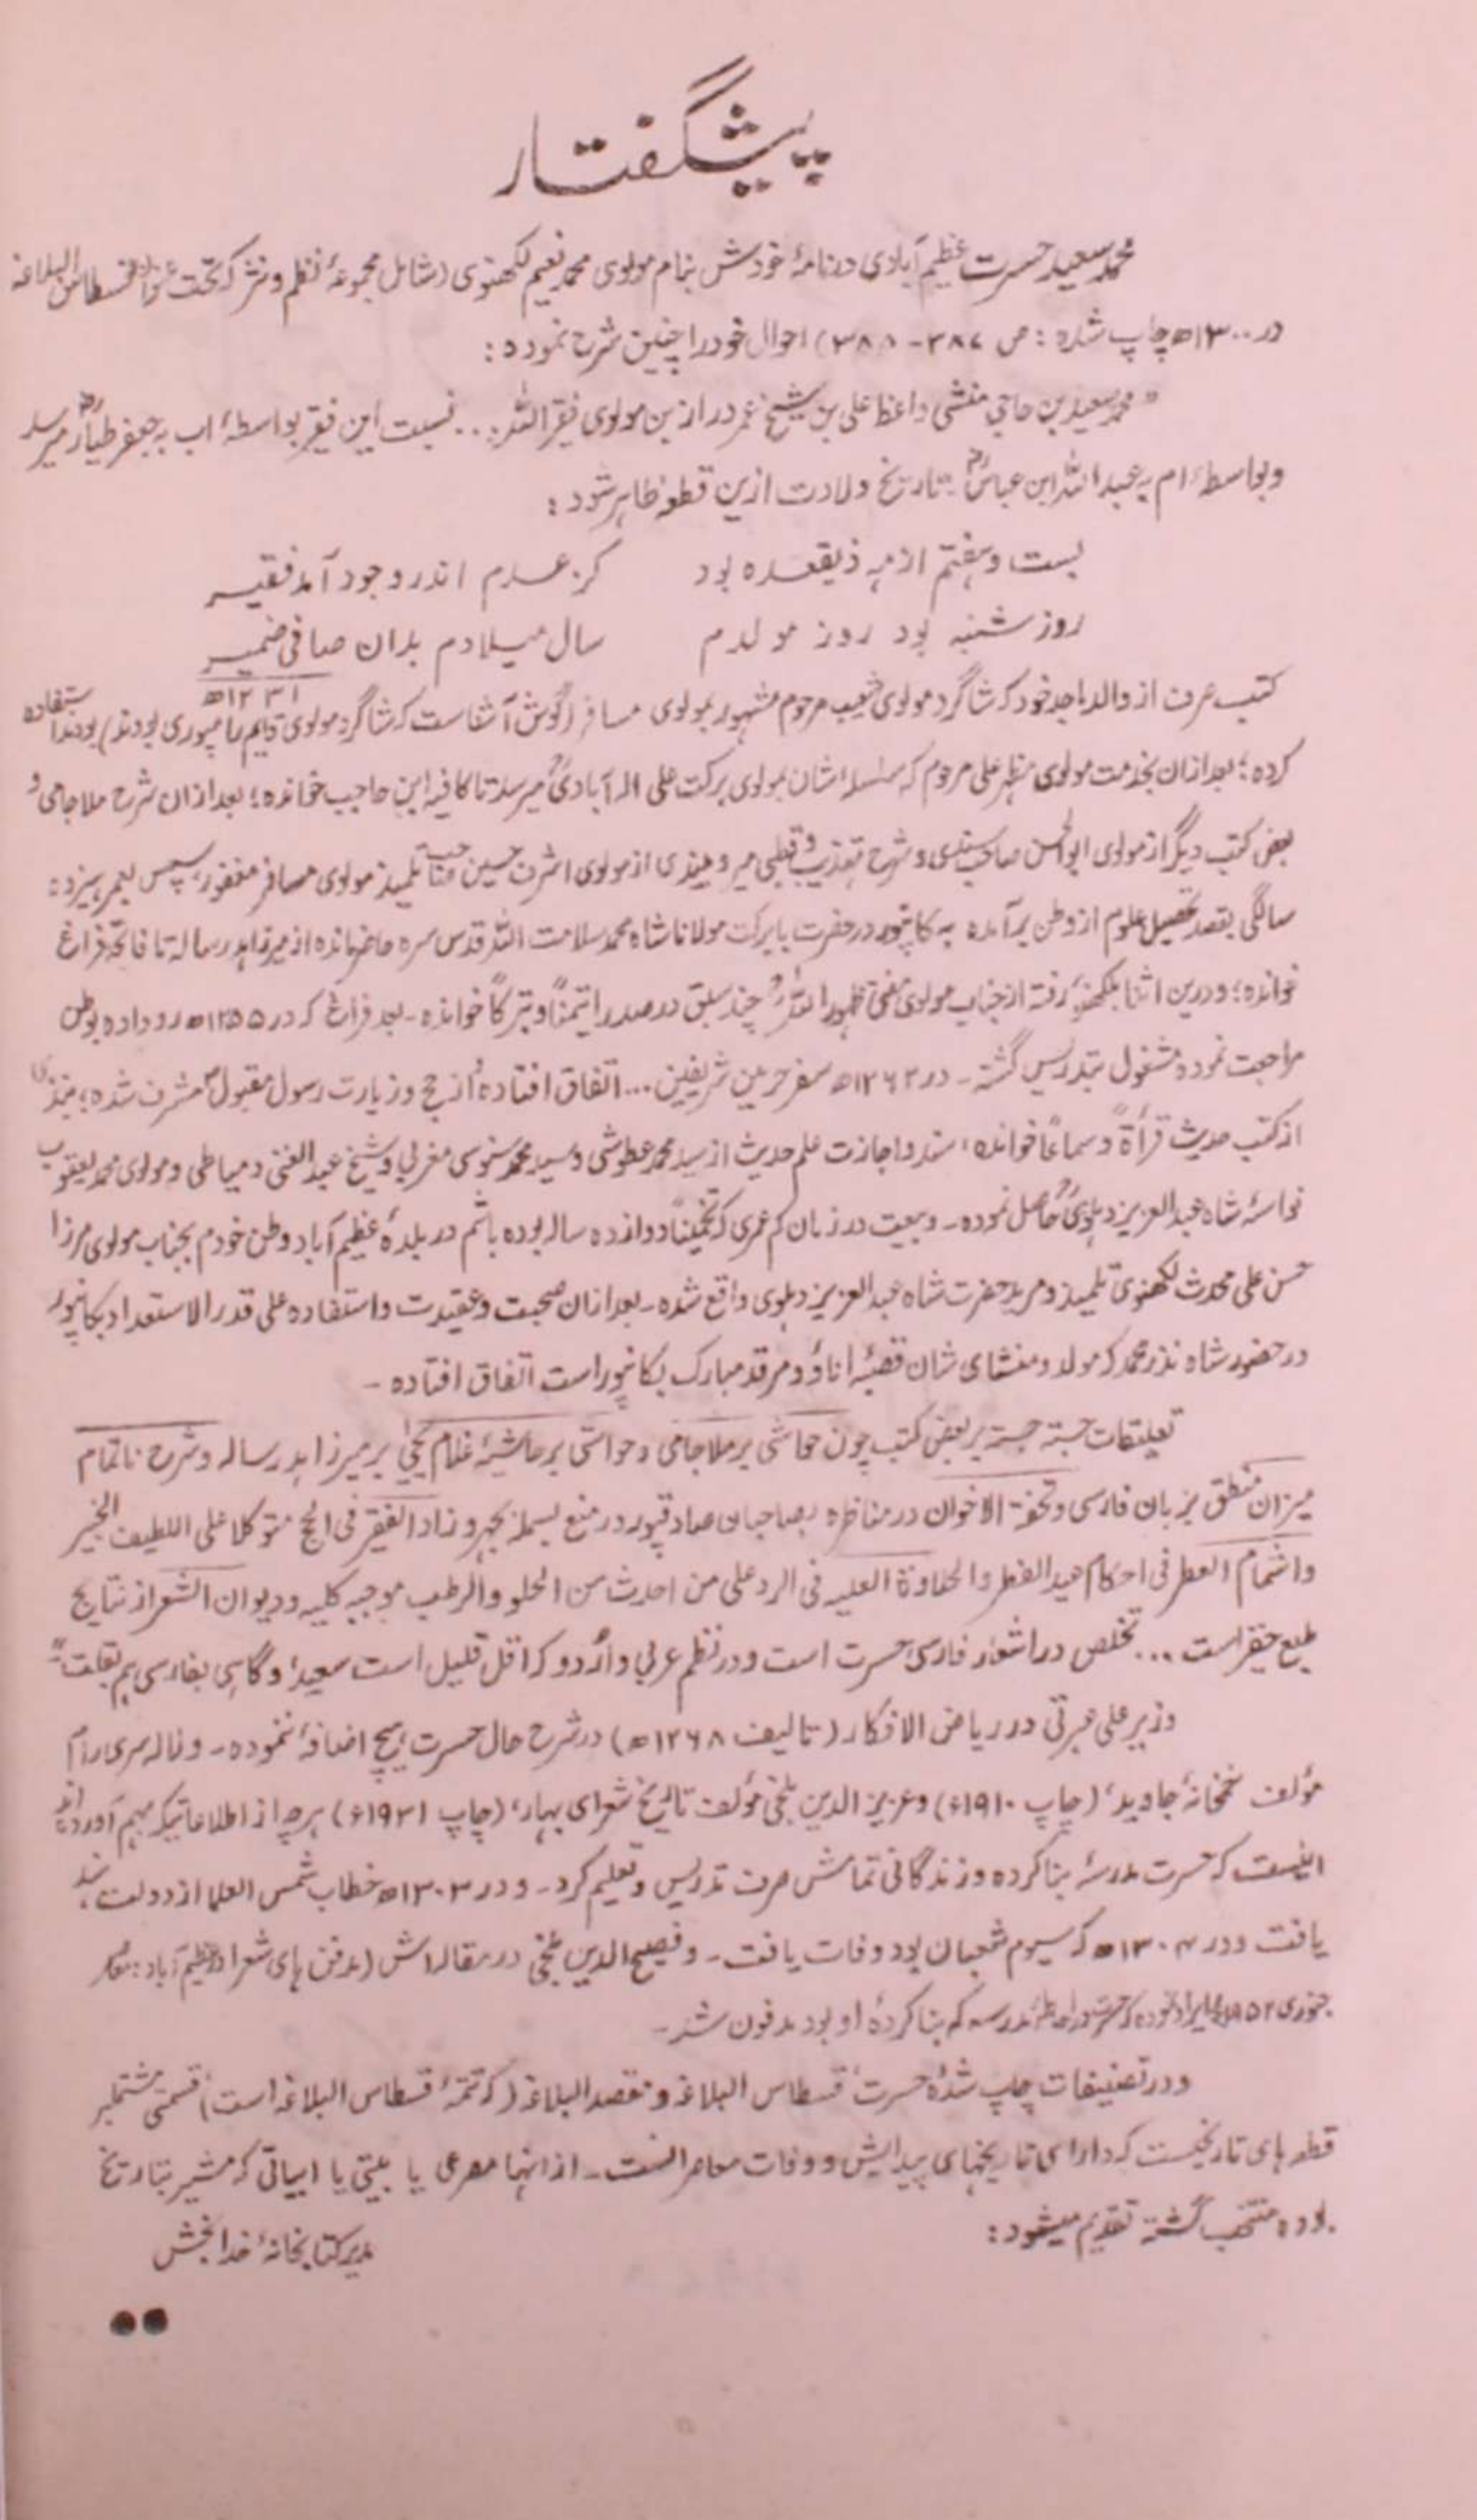 پیشگفتار
محمد سعید حسرت عظیم آبادی در نامۂ خودش بنام مولوی محمد نعیم لکھنوی (شامل مجموعۂ نظم و نثر کہ تحت عنوان قسطاس البلاغہ
در ۱۳۰۰ھ چاپ شدہ : ص ۳۸۷-۳۸۸) احوال خود را چنین شرح نمودہ :
"محمد سعید بن حاجی منشی واعظ علی بن شیخ عمر دراز بن مولوی فقیر اللہ... نسبت این فقیر بواسطۂ اب بہ جعفر طیارؓ میرسد
و بواسطۂ ام بہ عبد اللہ ابن عباسؓ - تاریخ ولادت ازین قطعہ ظاہر شود :
بست و ہفتم از مہ ذیقعدہ بود کز عدم اندر وجود آمد فقیر
روز شنبہ بود روز مولدم سال میلادم بدان صافی ضمیر
۱۲۳۱ھ
کتب صرف از والد ماجد خود کہ شاگرد مولوی شعیب مرحوم مشہور بمولوی مسافر (گوش آشناست کہ شاگرد مولوی قایم رامپوری بودند) بودند استفادہ
کردہ؛ بعد ازان بخدمت مولوی مظہر علی مرحوم کہ سلسلہ اشان بمولوی برکت علی الہ آبادیؒ میرسد تا کافیہ ابن حاجب خواندہ؛ بعد ازان شرح ملا جامی و
بعض کتب دیگر از مولوی ابو الحسن صاحب و شرح تہذیب و قطبی میر و میبذی از مولوی اشرف حسین صاحب تلمیذ مولوی مسافر مغفور۔ سپس بعمر سیزدہ
سالگی بقصد تحصیل علوم از وطن برآمدہ بہ کانپور در حضرت بابرکت مولانا شاہ محمد سلامت اللہ قدس سرہ حاضر ماندہ از میر زاہد رسالہ تا فاتحہ فراغ
خواندہ؛ و درین اثنا بلکھنؤ رفتہ از جناب مولوی مفتی ظہور اللہؒ چند سبق در صدرا تیمناً و تبرکاً خواندہ۔ بعد فراغ کہ در ۱۲۵۵ھ رو دادہ بوطن
مراجعت نمودہ مشغول بتدریس گشتہ۔ در ۱۲۶۲ھ سفر حرمین شریفین... اتفاق افتادہ از حج و زیارت رسول مقبولؐ مشرف شدہ؛
از کتب حدیث قرأۃً و سماعاً خواندہ، سند و اجازت علم حدیث از سید محمد عطوشی و سید محمد سنوسی مغربی و شیخ عبد الغنی دمیاطی و مولوی محمد یعقوب
نواسۂ شاہ عبد العزیز دہلویؒ حاصل نمودہ۔ و بیعت در زمان کم عمری کہ تخمیناً دوازدہ سالہ بودہ باشم در بلدۂ عظیم آباد وطن خودم بجناب مولوی مرزا
حسن علی محدث لکھنوی تلمیذ و مرید حضرت شاہ عبد العزیز دہلوی واقع شدہ۔ بعد ازان صحبت و عقیدت و استفادہ علی قدر الاستعداد بکانپور
در حضور شاہ نذر محمد کہ مولد و منشای شان قصبۂ اناؤ و مرقد مبارک بکانپور است اتفاق افتادہ ۔
تعلیقات جستہ جستہ بر بعض کتب چون حواشی بر ملا جامی و حواشی بر حاشیۂ غلام یحییٰ بر میر زاہد رسالہ و شرح ناتمام
میزان منطق بزبان فارسی و تحفۃ الاخوان در مناظرہ بصاحبان صادقپور در منع بسملہ بجہر و زاد الفقیر فی الحج متوکلا علی اللطیف الخبیر
و اشمام العطر فی احکام عید الفطر و الحلاوۃ العلیہ فی الرد علی من احدث من الحلو و الرطب موجبہ کلیہ و دیوان الشعر از نتایج
طبع حقیر است ... تخلص در اشعار فارسی حسرت است و در نظم عربی و اردو کہ اقل قلیل است سعید، و گاہی بفارسی ہم بقلت"
وزیر علی عبرتی در ریاض الافکار (تالیف ۱۲۶۸ھ) در شرح حال حسرت ہیچ اضافہ ننمودہ۔ و لالہ سری رام
مؤلف خمخانۂ جاوید، (چاپ ۱۹۱۰ء) و عزیز الدین بلخی مؤلف تاریخ شعرای بہار، (چاپ ۱۹۳۱ء) ہرچہ از اطلاعاتیکہ بہم آوردہ اند
اینست کہ حسرت مدرسۂ بنا کردہ و زندگانی تمامش صرف تدریس و تعلیم کرد۔ و در ۱۳۰۳ھ خطاب شمس العلما از دولت ہند
یافت و در ۱۳۰۴ھ کہ سیوم شعبان بود وفات یافت۔ و فصیح الدین بلخی در مقالہ اش (مدفن ہای شعرا در عظیم آباد : معاصر
جنوری ایراد نمودہ کہ حسرت در احاطۂ مدرسہ کہ بنا کردۂ او بود مدفون شد۔
و در تصنیفات چاپ شدۂ حسرت، قسطاس البلاغہ و مقصد البلاغہ (کہ تتمۂ قسطاس البلاغہ است) قسمتی مشتملبر
قطعہ ہای تاریخیست کہ دارای تاریخہای پیدایش و وفات معاصرانست۔ از انہا مصرعی یا بیتی یا ابیاتی کہ مشیر بتاریخ
بودہ منتخب گشتہ تقدیم میشود :
مدیر کتابخانۂ خدا بخش